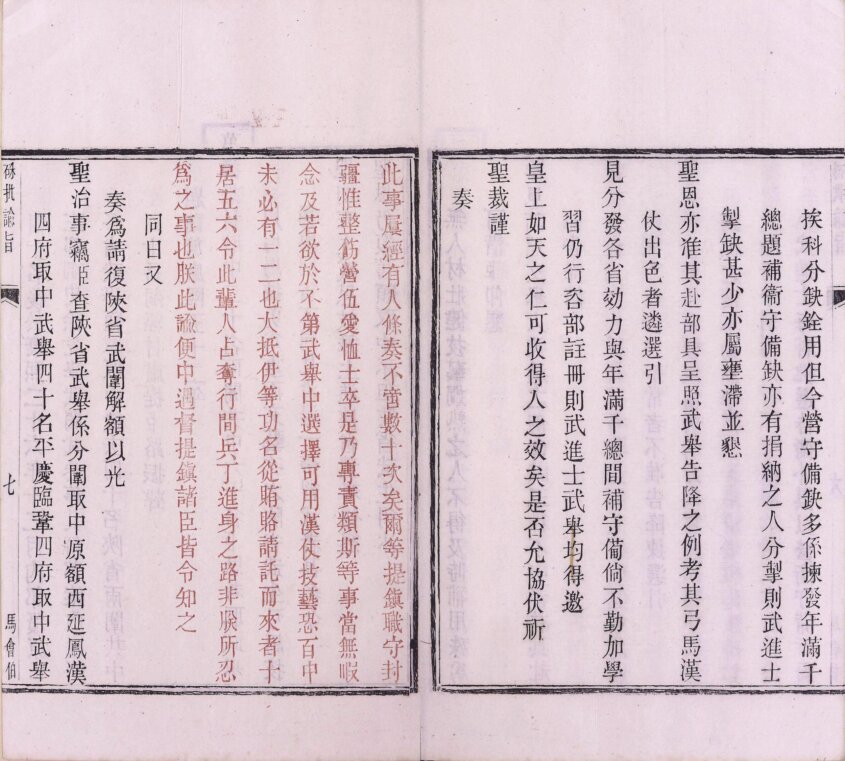 挨科分缺銓用但今營守備缺多係揀發年滿千
總題補衞守備缺亦有捐納之人分掣則武進士
掣缺甚少亦屬壅滯並懇
聖恩亦准其赴部具呈照武舉告降之例考其弓馬漢
仗出色者遴選引
見分發各省効力與年滿千總間補守備倘不勤加學
習仍行咨部註冊則武進士武舉均得邀
皇上如天之仁可收得人之效矣是否允協伏祈
聖裁謹
奏
此事屢經有人條奏不啻數十次矣爾等提鎭職守封
疆惟整飭營伍愛恤士卒是乃專責類斯等事當無暇
念及若欲於不第武舉中選擇可用漢仗技藝恐百中
未必有一二也大抵伊等功名從賄賂請託而來者十
居五六令此輩人占奪行間兵丁進身之路非朕所忍
爲之事也朕此諭便中過督提鎭諸臣皆令知之
同日又
奏爲請復陝省武闈解額以光
聖治事竊臣查陝省武舉係分闈取中原額西延鳳漢
四府取中武舉四十名平慶臨鞏四府取中武舉
硃批諭旨
七
馬會伯